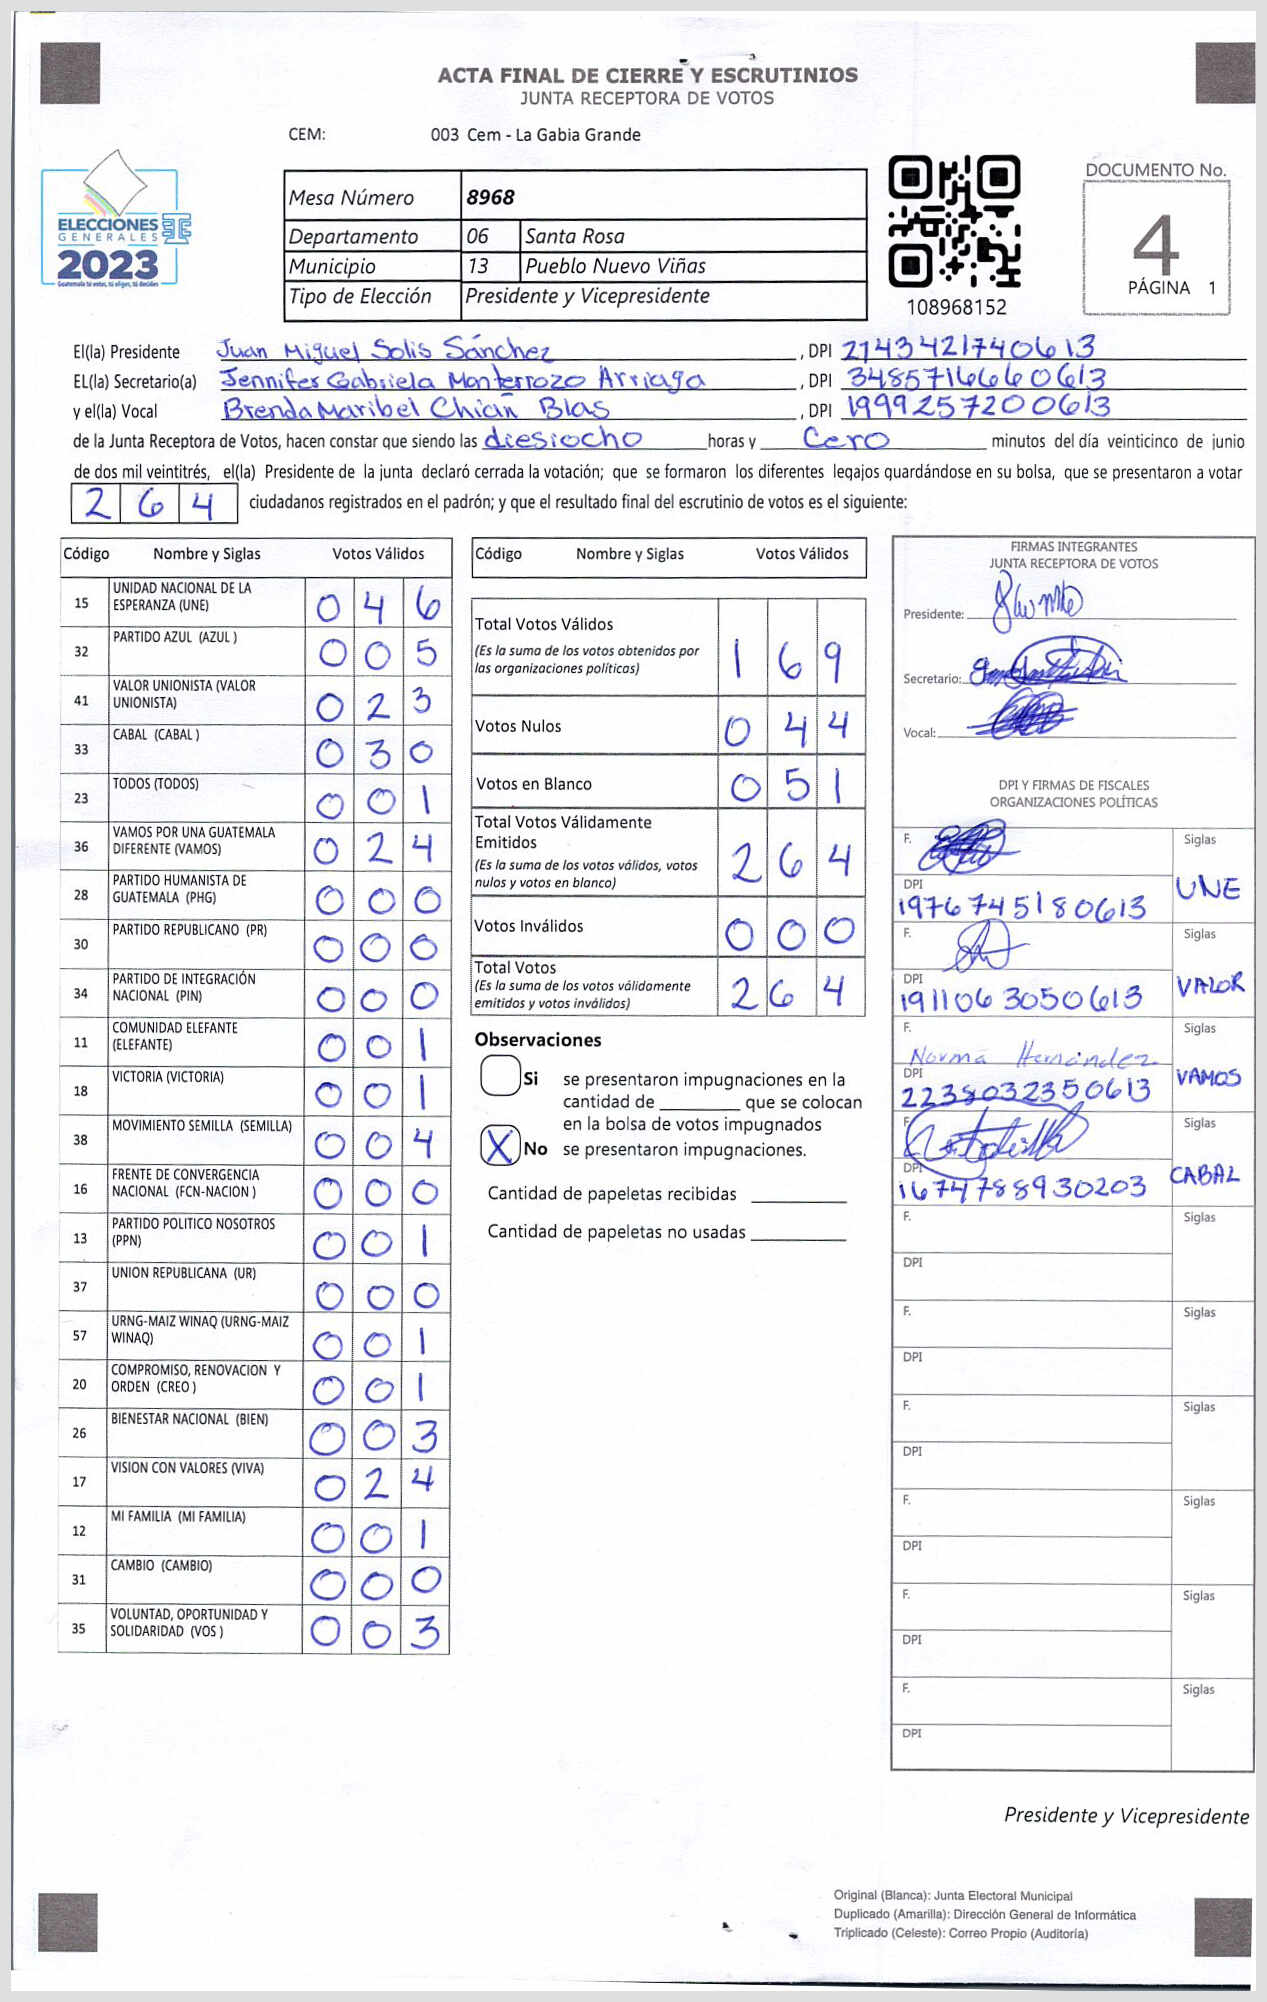 ACTA FINAL DE CIERRE Y ESCRUTINIOS
JUNTA RECEPTORA DE VOTOS
CEM: 003 Cem - La Gabia Grande
ELECCIONES
GENERALES
2023
Guatemala tú votas, tú eliges, tú decides
Mesa Número 8968
Departamento 06 Santa Rosa
Municipio 13 Pueblo Nuevo Viñas
Tipo de Elección Presidente y Vicepresidente
108968152
DOCUMENTO No.
4
PÁGINA 1
El(la) Presidente Juan Miguel Solis Sánchez, DPI 2143421740613
EL(la) Secretario(a) Jennifer Gabriela Monterrozo Arriaga, DPI 3485716660613
y el(la) Vocal Brenda Maribel Chicin Blas, DPI 1999257200613
de la Junta Receptora de Votos, hacen constar que siendo las diesiocho horas y Cero minutos del día veinticinco de junio
de dos mil veintitrés, el(la) Presidente de la junta declaró cerrada la votación; que se formaron los diferentes legajos quardándose en su bolsa, que se presentaron a votar
264 ciudadanos registrados en el padrón; y que el resultado final del escrutinio de votos es el siguiente:
Código Nombre y Siglas Votos Válidos
15 UNIDAD NACIONAL DE LA ESPERANZA (UNE) 046
32 PARTIDO AZUL (AZUL ) 005
41 VALOR UNIONISTA (VALOR UNIONISTA) 023
33 CABAL (CABAL ) 030
23 TODOS (TODOS) 001
36 VAMOS POR UNA GUATEMALA DIFERENTE (VAMOS) 024
28 PARTIDO HUMANISTA DE GUATEMALA (PHG) 000
30 PARTIDO REPUBLICANO (PR) 000
34 PARTIDO DE INTEGRACIÓN NACIONAL (PIN) 000
11 COMUNIDAD ELEFANTE (ELEFANTE) 001
18 VICTORIA (VICTORIA) 001
38 MOVIMIENTO SEMILLA (SEMILLA) 004
16 FRENTE DE CONVERGENCIA NACIONAL (FCN-NACION ) 000
13 PARTIDO POLITICO NOSOTROS (PPN) 001
37 UNION REPUBLICANA (UR) 000
57 URNG-MAIZ WINAQ (URNG-MAIZ WINAQ) 001
20 COMPROMISO, RENOVACION Y ORDEN (CREO ) 001
26 BIENESTAR NACIONAL (BIEN) 003
17 VISION CON VALORES (VIVA) 024
12 MI FAMILIA (MI FAMILIA) 001
31 CAMBIO (CAMBIO) 000
35 VOLUNTAD, OPORTUNIDAD Y SOLIDARIDAD (VOS ) 003
Código Nombre y Siglas Votos Válidos
Total Votos Válidos
(Es la suma de los votos obtenidos por las organizaciones políticas) 169
Votos Nulos 044
Votos en Blanco 051
Total Votos Válidamente Emitidos
(Es la suma de los votos válidos, votos nulos y votos en blanco) 264
Votos Inválidos 000
Total Votos
(Es la suma de los votos válidamente emitidos y votos inválidos) 264
Observaciones
Si se presentaron impugnaciones en la
cantidad de ________ que se colocan
en la bolsa de votos impugnados
X No se presentaron impugnaciones.
Cantidad de papeletas recibidas ________
Cantidad de papeletas no usadas ________
FIRMAS INTEGRANTES
JUNTA RECEPTORA DE VOTOS
Presidente:
Secretario:
Vocal:
DPI Y FIRMAS DE FISCALES
ORGANIZACIONES POLÍTICAS
F. Siglas
DPI 1976745180613 UNE
F. Siglas
DPI 1911063050613 VALOR
F. Norma Hernández Siglas
DPI 2238032350613 VAMOS
F. Siglas
DPI 1674788930203 CABAL
F. Siglas
DPI
F. Siglas
DPI
F. Siglas
DPI
F. Siglas
DPI
F. Siglas
DPI
F. Siglas
DPI
Presidente y Vicepresidente
Original (Blanca): Junta Electoral Municipal
Duplicado (Amarilla): Dirección General de Informática
Triplicado (Celeste): Correo Propio (Auditoría)